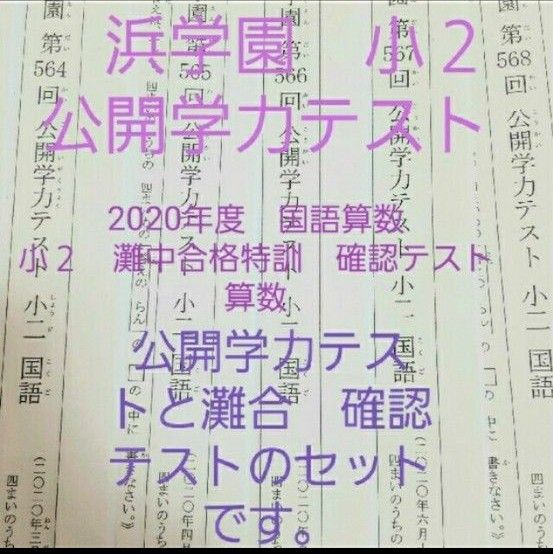 浜学園　小２
公開学力テスト
2020年度　国語算数
小２　灘中合格特訓　確認テスト
算数
公開学力テス
トと灘合　確認
テストのセット
です。
園 第568回 公開学力テスト 小二 国語
書きなさい。》
四まいのうち
園 第567回 公開学力テスト 小二 国語
(二〇二〇年六月
四まいのうちの
園 第566回 公開学力テスト 小二 国語
第565回 公開学力テスト 小二 国語
(二〇二〇年四月
四まいのうちの
園 第564回 公開学力テスト 小二 国語
(二〇二〇年三
四まいのうち